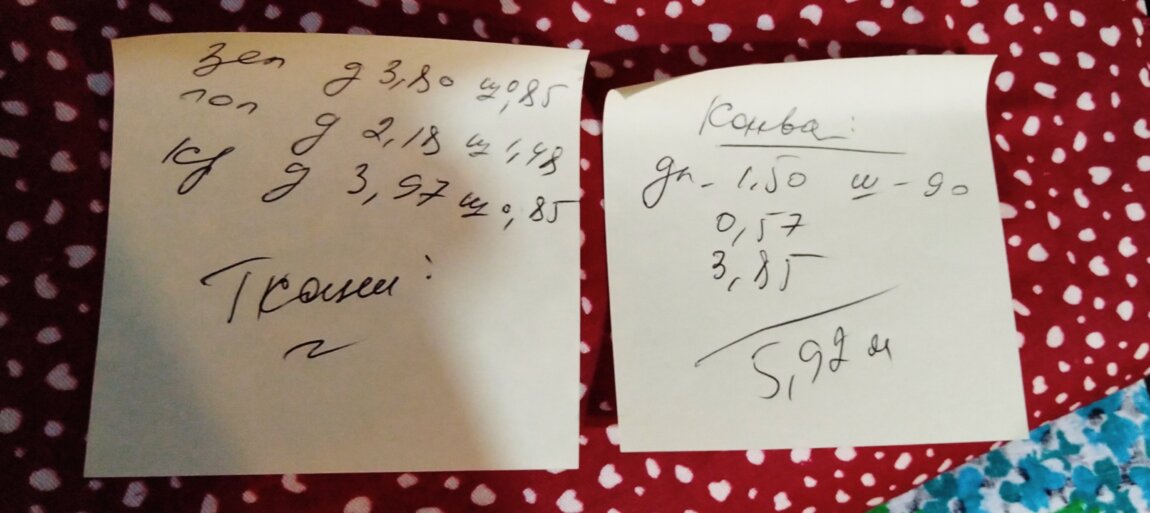 зел д 3,80 ш 0,85
гол д 2,18 ш 1,48
кр д 3,97 ш 0,85
Ткани:
Канва:
дл - 1,50 ш - 90
0,57
3,85
5,92 м